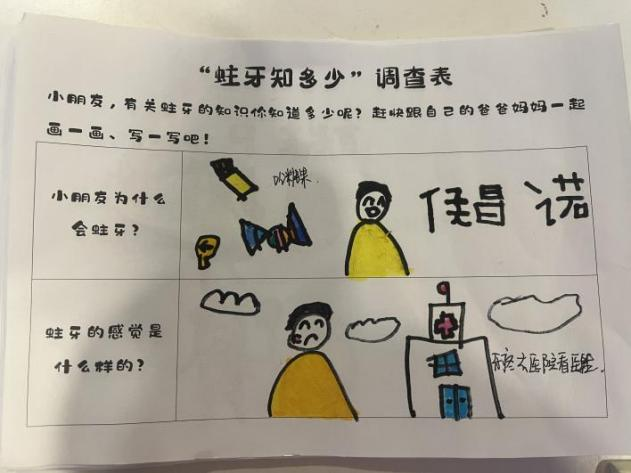 “蛀牙知多少”调查表
小朋友，有关蛀牙的知识你知道多少呢？赶快跟自己的爸爸妈妈一起
画一画、写一写吧！
小朋友为什么
会蛀牙？
吃糖果.
诺
蛀牙的感觉是
什么样的？
牙疼去医院看医生.